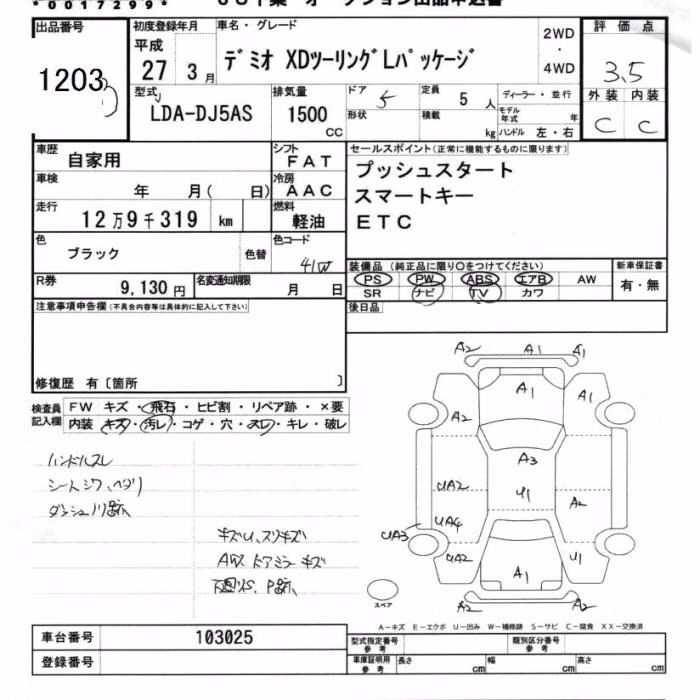 *0017299*
JU千葉 オークション出品申込書
出品番号 初度登録年月 車名・グレード 2WD・4WD 評価点
1203 平成 27 3月 デミオ XDツーリングLパッケージ 3.5
型式 LDA-DJ5AS 排気量 1500 CC ドア 5 定員 5人 ディーラー・並行 外装 内装
形状 積載 kg モデル年式 年 ハンドル 左・右 C C
車歴 自家用 シフト FAT セールスポイント(正常に機能するものに限ります)
車検 年 月( 日) 冷房 AAC プッシュスタート
スマートキー
走行 12万9千319 km 燃料 軽油 ETC
色 ブラック 色替 色コード 41W
装備品 (純正品に限り○をつけてください) 新車保証書
R券 9,130円 名変通知期限 月 日 PS PW ABS エアB AW 有・無
SR ナビ TV カワ
注意事項申告欄(不具合内容等は具体的に記入して下さい) 後日品
修復歴 有〔箇所 〕
検査員記入欄 FW キズ・飛石・ヒビ割・リペア跡・×要
内装 キズ・汚レ・コゲ・穴・スレ・キレ・破レ
ハンドルスレ
シートシワ、ヘタリ
ダッシュ川跡
キズU、スリキズ
AW ドアミラーキズ
下回りS、P跡
A2 A1 A1
A1
A2
A3
UA2 U1 A2
UA4
UA3
UA2 U1
A1
A2 A2
スペア
A-キズ E-エクボ U-凹み W-補修跡 S-サビ C-腐食 XX-交換済
車台番号 103025 型式指定番号 参考 類別区分番号 参考
登録番号 車庫証明用 参考 長さ cm 幅 cm 高さ cm